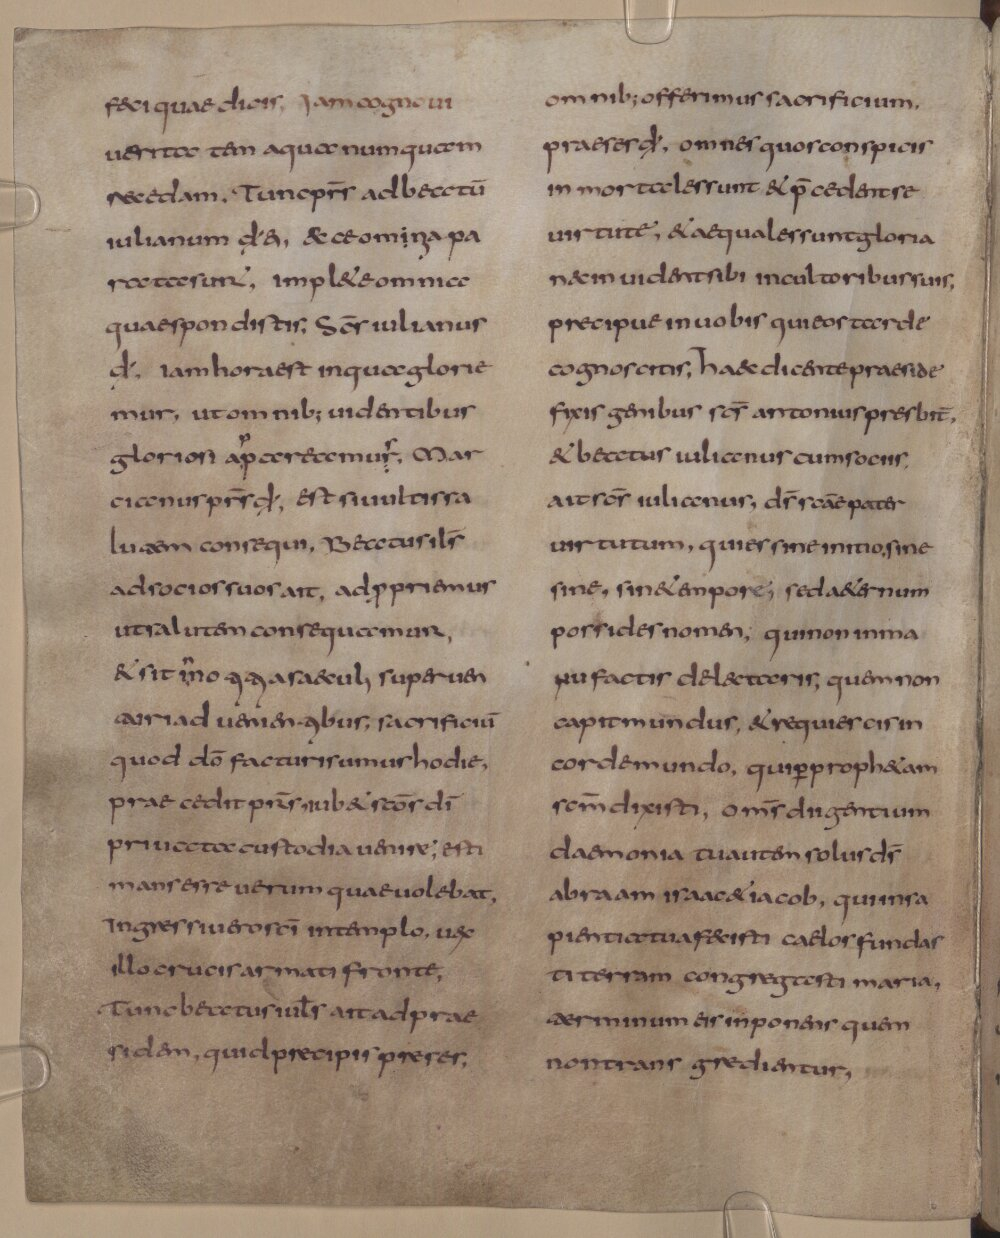 feci quae dicis, Iam cognovi
veritatem a qua numquam
recedam. Tunc prs̄ ad beatū
iulianum d̶. &, & ce omnia pa
rata sunt, implete omnia
quae spondistis; Scs̄ iulianus
d̶. Iam hora est in qua glorie
mur, ut omnib; videntibus
gloriosi appareamur, Mar
cianus prs̄ d̶, est si vultis sa
lutem consequi, Beatus iuls̄
ad socios suos ait, adpropriemus
ut salutem consequamur,
& sit in saecul superven
ad venientibus, sacrificiū
quod dō facturi sumus hodie,
praecedit prs̄, iub& scōs dī
privata custodia venire; esti
mans esse verum quae volebat,
Ingressi vero scī in templo, vex
illo crucis armati fronte,
Tunc beatus iuls̄ ait ad prae
sidem, quid precipis preses,
omnib; offerimus sacrificium,
praeses d̶, omnes quos conspicis
inmortales sunt & p̄cedent se
virtute, & aequales sunt gloria
nec invident sibi in cultoribus suis,
precipue in vobis qui eos tarde
cognoscitis, haec dicente praeside
fixis genibus scs̄ antonius presbit̄,
& beatus iulianus cum sociis,
ait scs̄ iulianus, ds̄ scāe pater
virtutum, qui es sine initio, sine
fine, sine tempore, sed aeternum
possides nomen, qui non in ma
nu factis delectaris, quem non
capit mundus, & requiescis in
corde mundo, qui per prophetam
scm̄ dixisti, Oms̄ dii gentium
daemonia tu autem solus ds̄
abraam isaac & iacob, qui in sa
pientia tua fecisti caelos fundas
ti terram congregasti maria,
terminum eis inponens quem
non transgredientur,